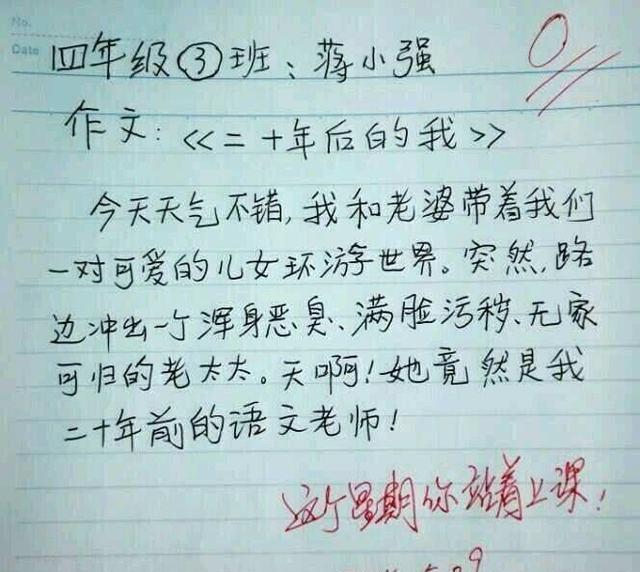 No.
Date
四年级③班：蒋小强
0
作文：《二十年后的我》
今天天气不错，我和老婆带着我们
一对可爱的儿女环游世界。突然，路
边冲出一个浑身恶臭、满脸污秽、无家
可归的老太太。天啊！她竟然是我
二十年前的语文老师！
这个星期你站着上课！